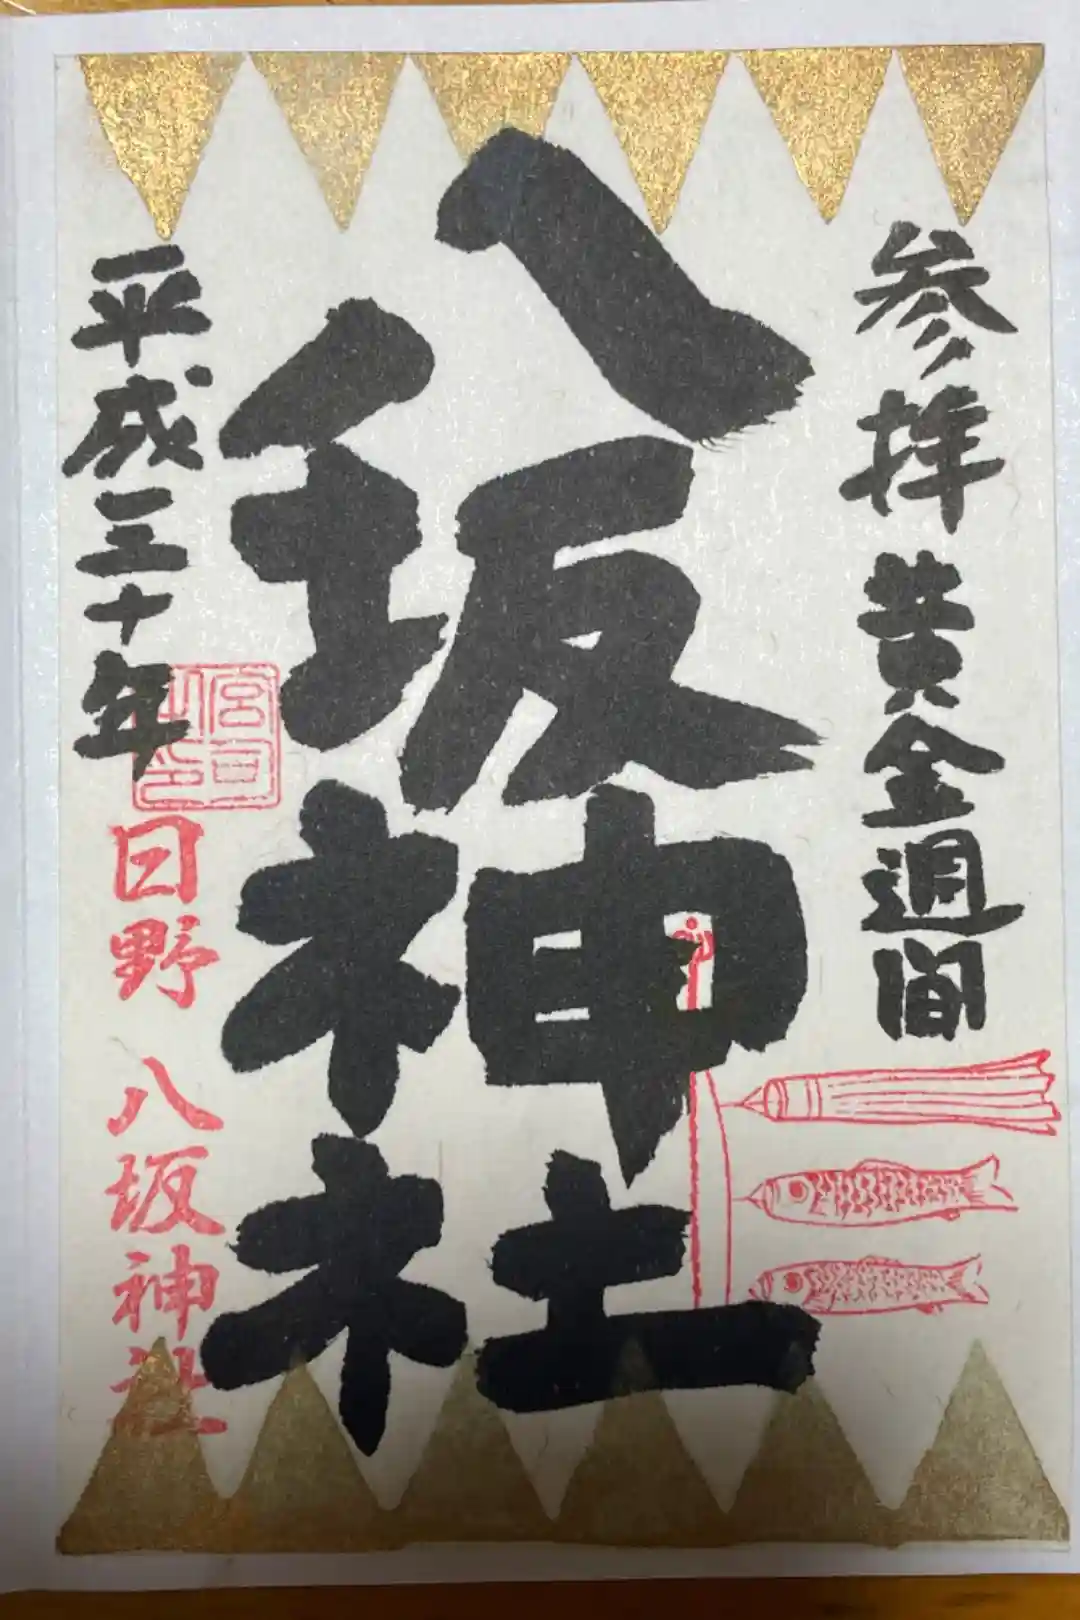 参拝 黄金週間
八坂神社
平成三十年
宮司之印
日野 八坂神社